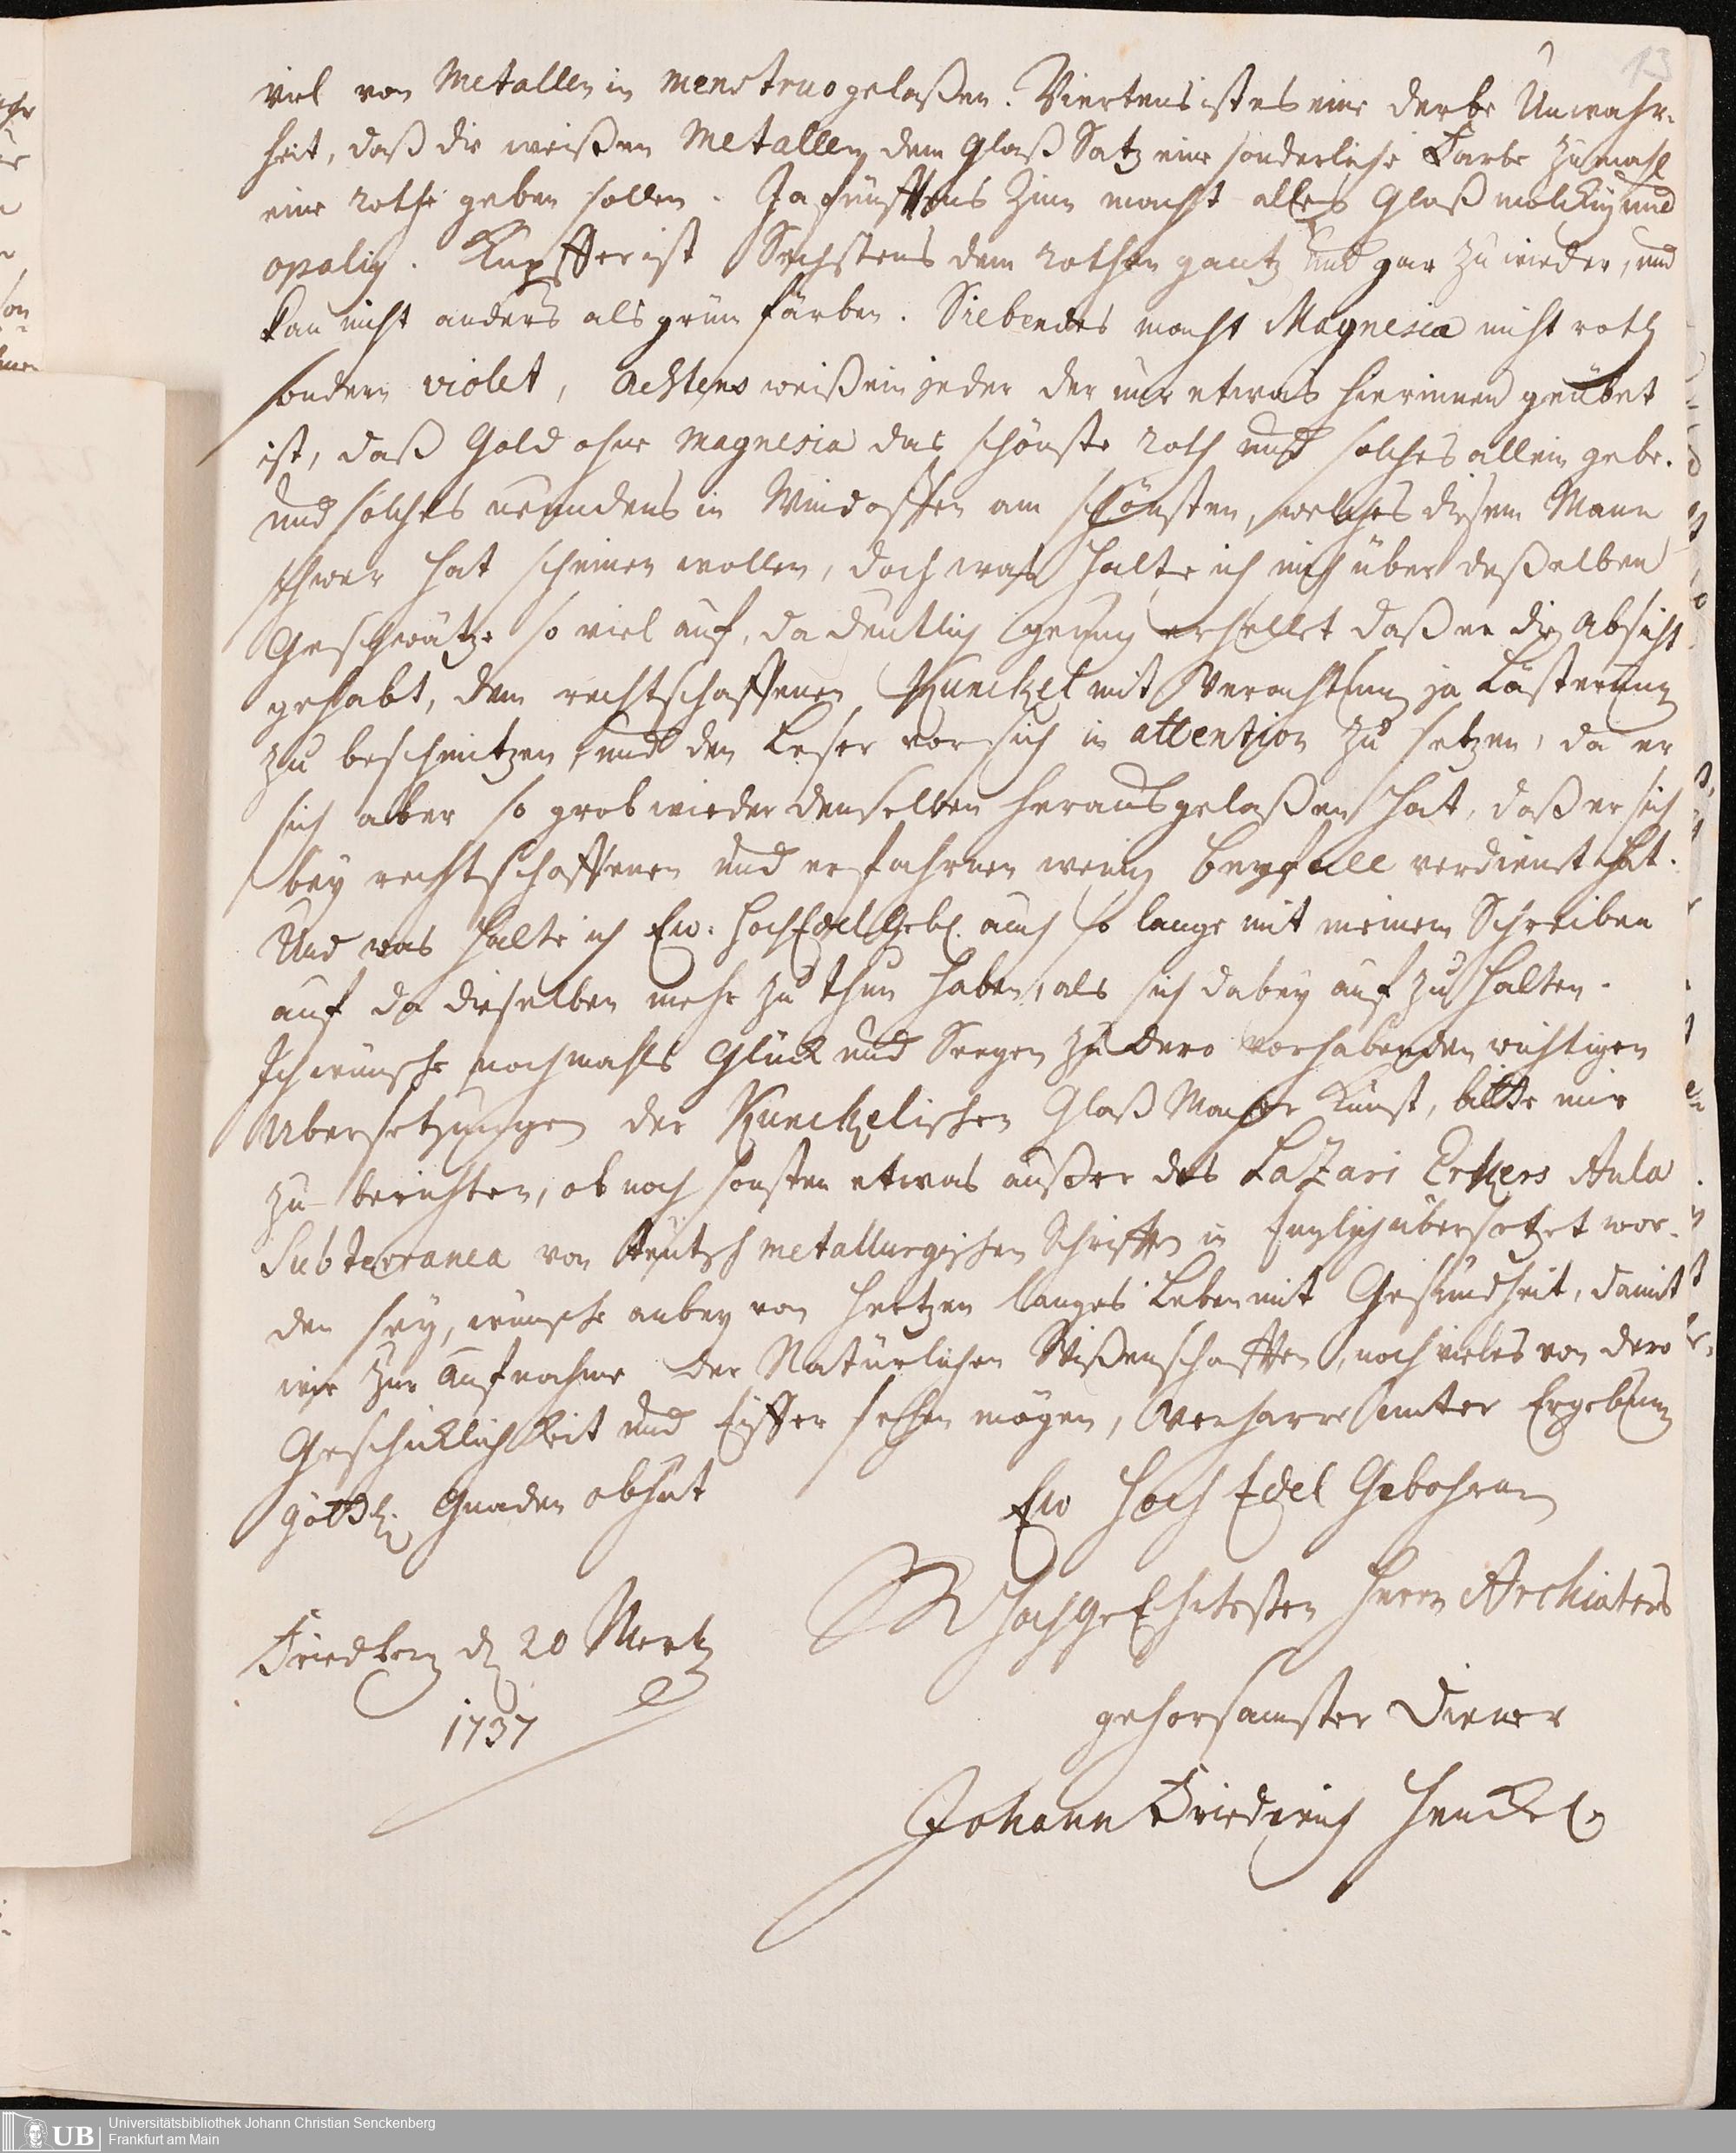 13
viel von Metallen in menstruo gelaßen. Viertens ist es eine derbe Unwahr-
heit, daß die weißen Metallen dem Glaß Satz eine sonderliche Farbe zumahl
eine rothe geben sollen. Ja fünfftens Zinn macht alles Glaß molckig und
opalig. Kupffer ist Sechstens dem rothen gantz und gar zu wieder, und
kan nicht anders als grün färben. Siebendes macht Magnesia nicht roth
sondern violet, achtens weiß ein jeder der nur etwas hierinnen geübet
ist, daß Gold ohne magnesia das schönste roth und solches allein gebe.
und solches neundens in Windoffen am schönsten, welches diesem Mann
schwer hat scheinen wollen, doch was halte ich mich über deßelben
Geschwätze so viel auf, da deutlich genug erhellet daß er die Absicht
gehabt, den rechtschaffenen Kunckel mit Verachtung ja Lästerung
zu beschmitzen, und den Leser vor sich in attention zu setzen, da er
sich aber so grob wieder denselben herausgelaßen hat, daß er sich
bey rechtschaffenen und erfahrnen wenig beyfall verdienet hat.
Und was halte ich Ew. HochEdelGeb. auch so lange mit meinem Schreiben
auf da dieselben mehr zu thun haben, als sich dabey auf zu halten.
Ich wünsche nochmahls Glück und Seegen zu dero vorhabenden wichtigen
Ubersetzungen der Kunckelischen Glaß Macher Kunst, bitte mir
zu berichten, ob noch sonsten etwas außer des Lazari Erkers Aula
Subterranea von teutsch metallurgischen Schrifften in Englisch übersetzet wor-
den sey, wünsche anbey von Hertzen langes Leben mit Gesundheit, damit
wir zur Aufnahme der Natürlichen Wißenschafften, noch vieles von dero
Geschicklichkeit und Eyffer sehen mögen, Verharre unter Ergebung
göttl. Gnaden obhut
Ew Hoch Edel Gebohren
HochgeEhrtesten Herrn Archiaters
Friedberg d. 20 Mertz
1737
gehorsamster Diener
Johann Friedrich Henckel.
UB
Universitätsbibliothek Johann Christian Senckenberg
Frankfurt am Main